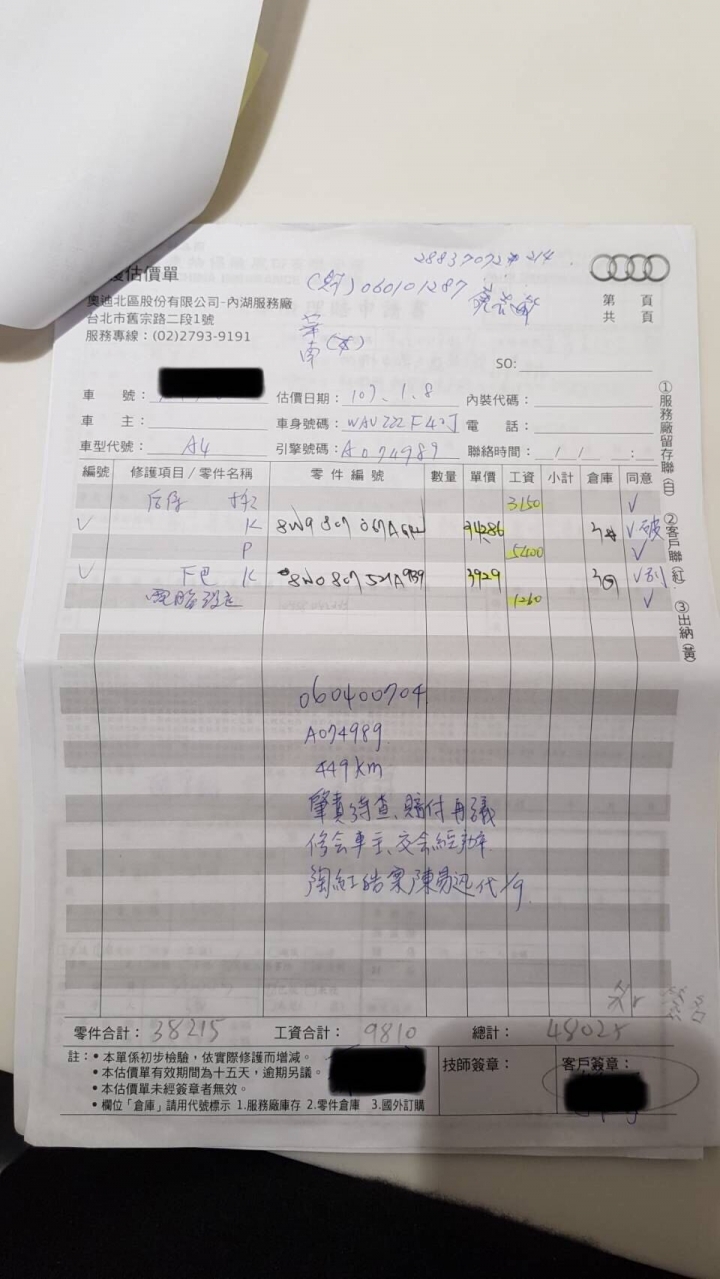 28837072#214
(財)060101287
估價單
奧迪北區股份有限公司-內湖服務廠
台北市舊宗路二段1號
服務專線：(02)2793-9191
華南
第 頁
共 頁
SO:
車 號： 估價日期：107.1.8 內裝代碼：
車 主： 車身號碼： 電 話：
車型代號：A4 引擎號碼：A074989 聯絡時間： / / :
①服務廠留存聯(白) ②客戶聯(紅) ③出納(黃)
編號 修護項目/零件名稱 零件編號 數量 單價 工資 小計 倉庫 同意
3150 √
√ K 8W9 807 067A 34286 √破
P 5400 √
√ 下巴 K 8W0 807 521A 3929 √刮
電腦設定 1260 √
060400704
A074989
449km
肇責待查、賠付再議
修会車主、交会經辦
代1/9
零件合計：38215 工資合計：9810 總計：48025
註：•本單係初步檢驗，依實際修護而增減。
•本估價單有效期間為十五天，逾期另議。
•本估價單未經簽章者無效。
•欄位「倉庫」請用代號標示 1.服務廠庫存 2.零件倉庫 3.國外訂購
技師簽章：
客戶簽章：